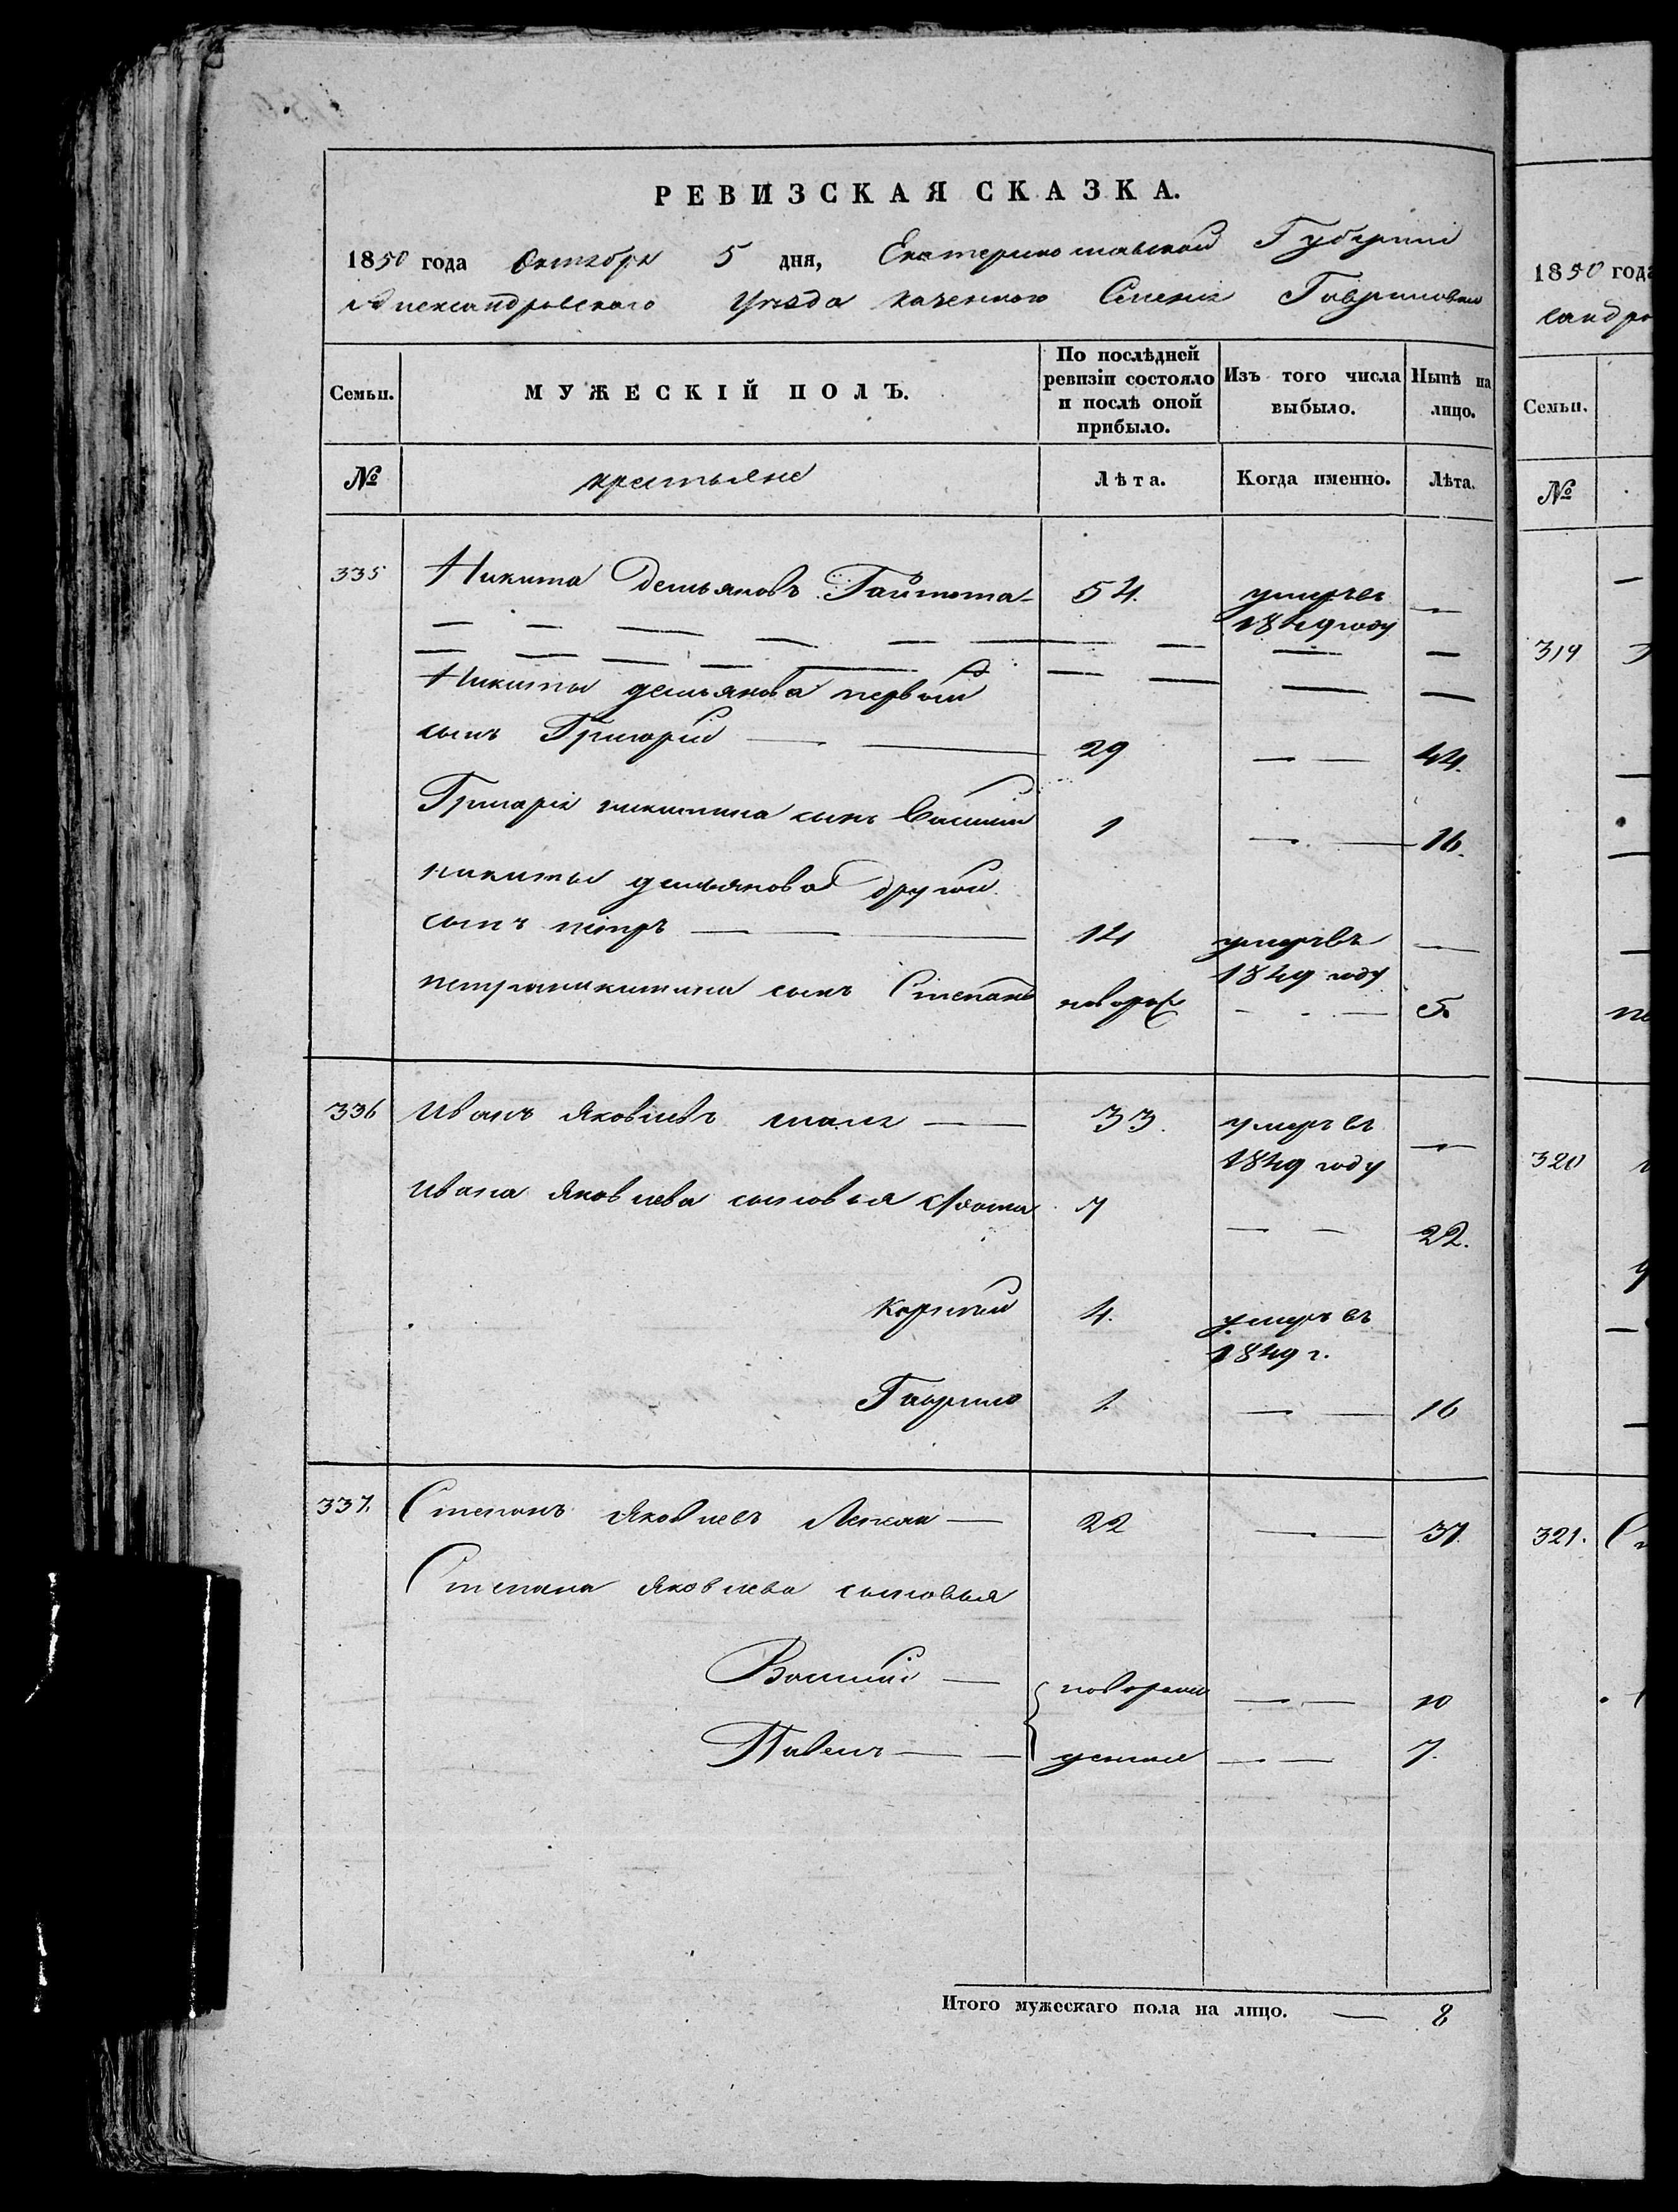 РЕВИЗСКАЯ СКАЗКА.
1850 года Октября 5 дня, Екатеринославской Губернии
Александровского Уезда казенного Селения Гавриловки
Семьи. МУЖЕСКІЙ ПОЛЪ. По послѣдней ревизіи состояло и послѣ оной прибыло. Изъ того числа выбыло. Нынѣ на лицо.
№ крестьяне Лѣта. Когда именно. Лѣта.
335 Никита Демьяновъ 54. умеръ въ —
1849 году
Никиты демьянова первый
сынъ Григорій — — 29 — — 44.
Григорія никитина сынъ Василій 1 — — 16.
никиты демьянова другой
сынъ петръ — — 14 умеръ въ —
1849 году
петра никитина сынъ Степанъ новорож — — 5.
336 Иванъ Яковлевъ — — 33. умеръ въ —
1849 году
Ивана Яковлева сыновья 7 — — 22.
Корнѣй 4. умеръ въ
1849 г.
Гаврило 1. — — 16
337. Степанъ Яковлевъ — 22 — — 37.
Степана Яковлева сыновья
Василій — новорож — — 10
Павелъ — — денные — — 7.
Итого мужескаго пола на лицо. — 8
1850 года
сандро
Семьи.
№
319
320
321.